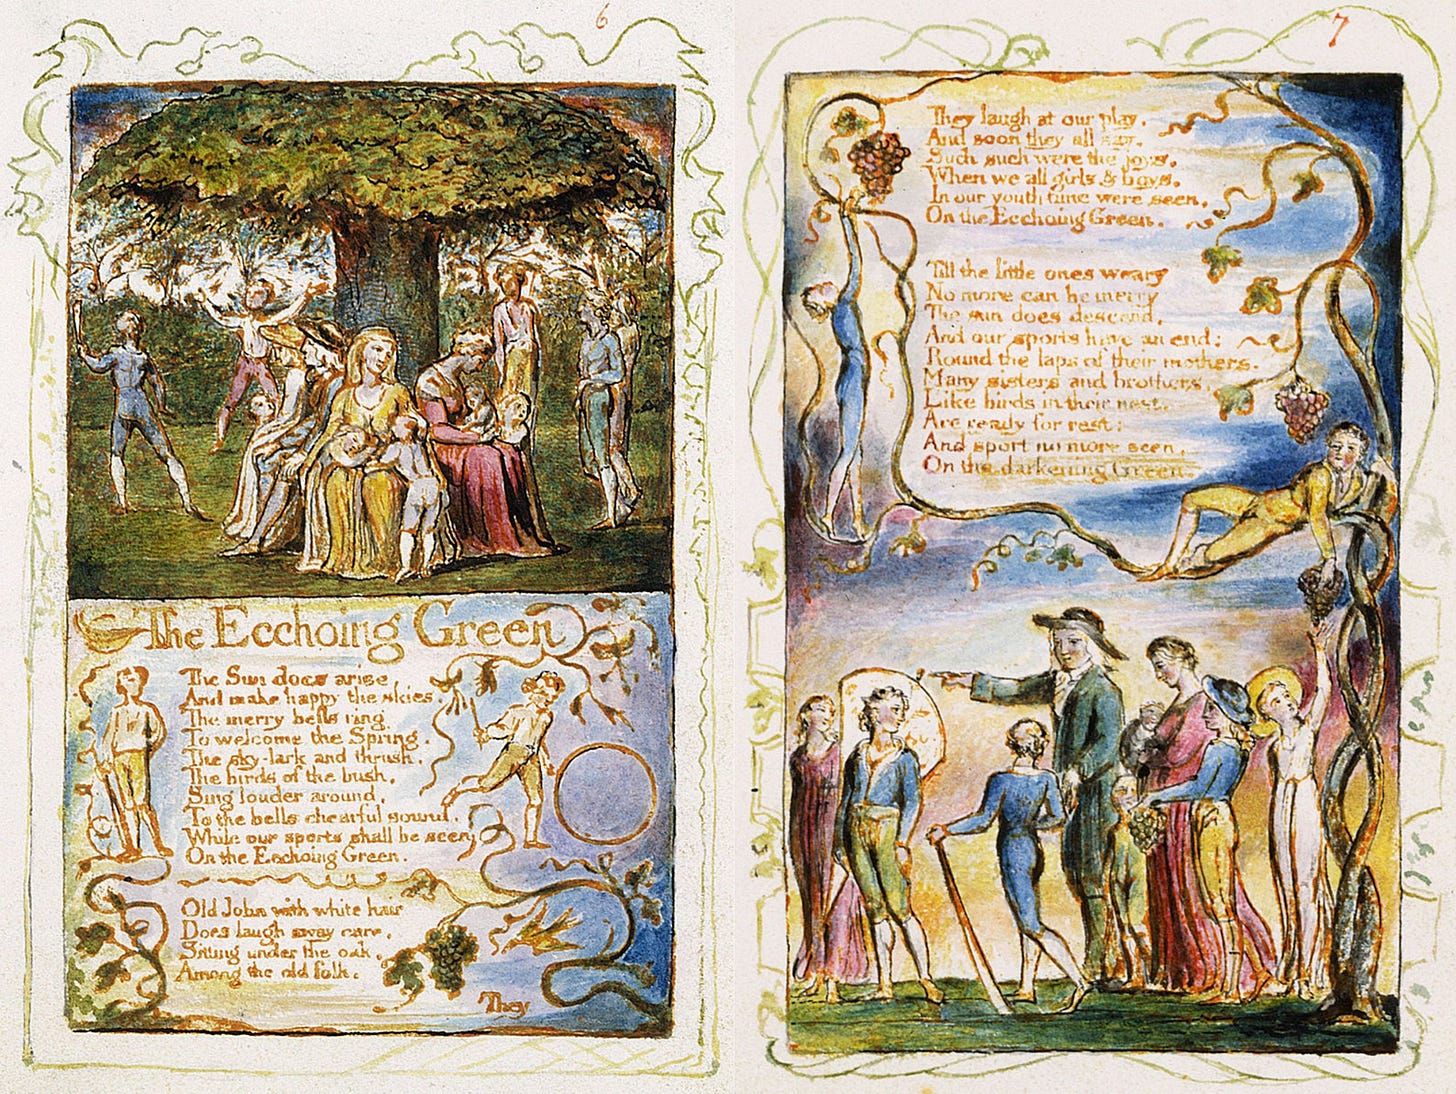 6
The Ecchoing Green
The Sun does arise
And make happy the skies.
The merry bells ring
To welcome the Spring.
The sky-lark and thrush,
The birds of the bush,
Sing louder around,
To the bells chearful sound.
While our sports shall be seen
On the Ecchoing Green.
Old John with white hair
Does laugh away care,
Sitting under the oak,
Among the old folk.
They
7
They laugh at our play,
And soon they all say.
Such such were the joys,
When we all girls & boys,
In our youth time were seen,
On the Ecchoing Green.
Till the little ones weary
No more can be merry
The sun does descend,
And our sports have an end:
Round the laps of their mothers,
Many sisters and brothers,
Like birds in their nest,
Are ready for rest;
And sport no more seen,
On the darkening Green.